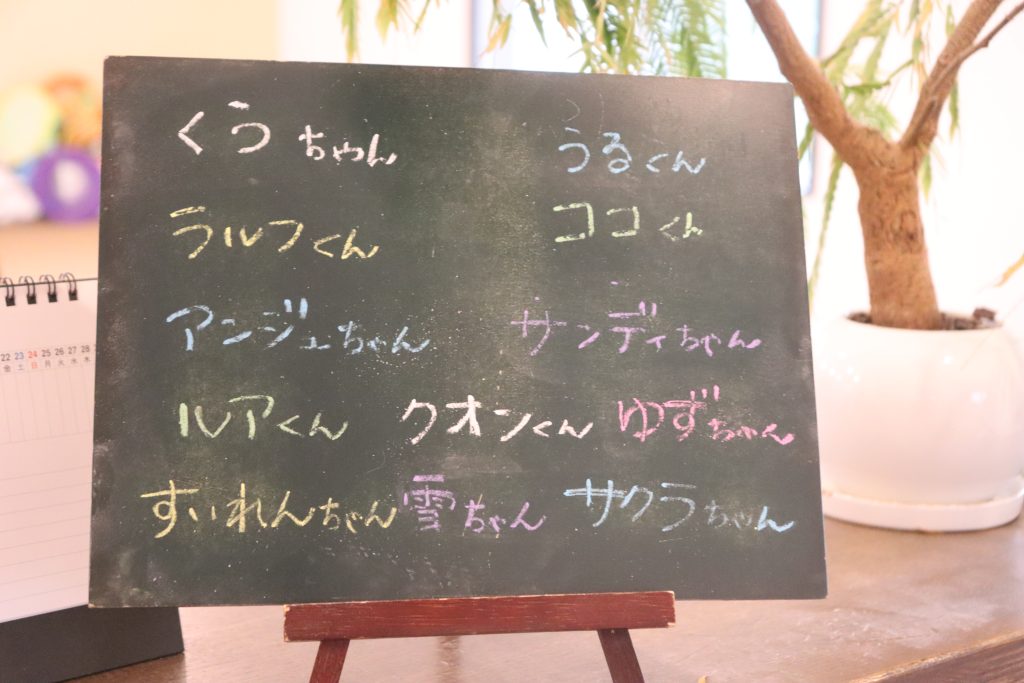 くうちゃん うるくん
ラルフくん ココくん
アンジュちゃん サンディちゃん
ルアくん クオンくん ゆずちゃん
すいれんちゃん 雪ちゃん サクラちゃん
22 23 24 25 26 27 28
金 土 日 月 火 水 木